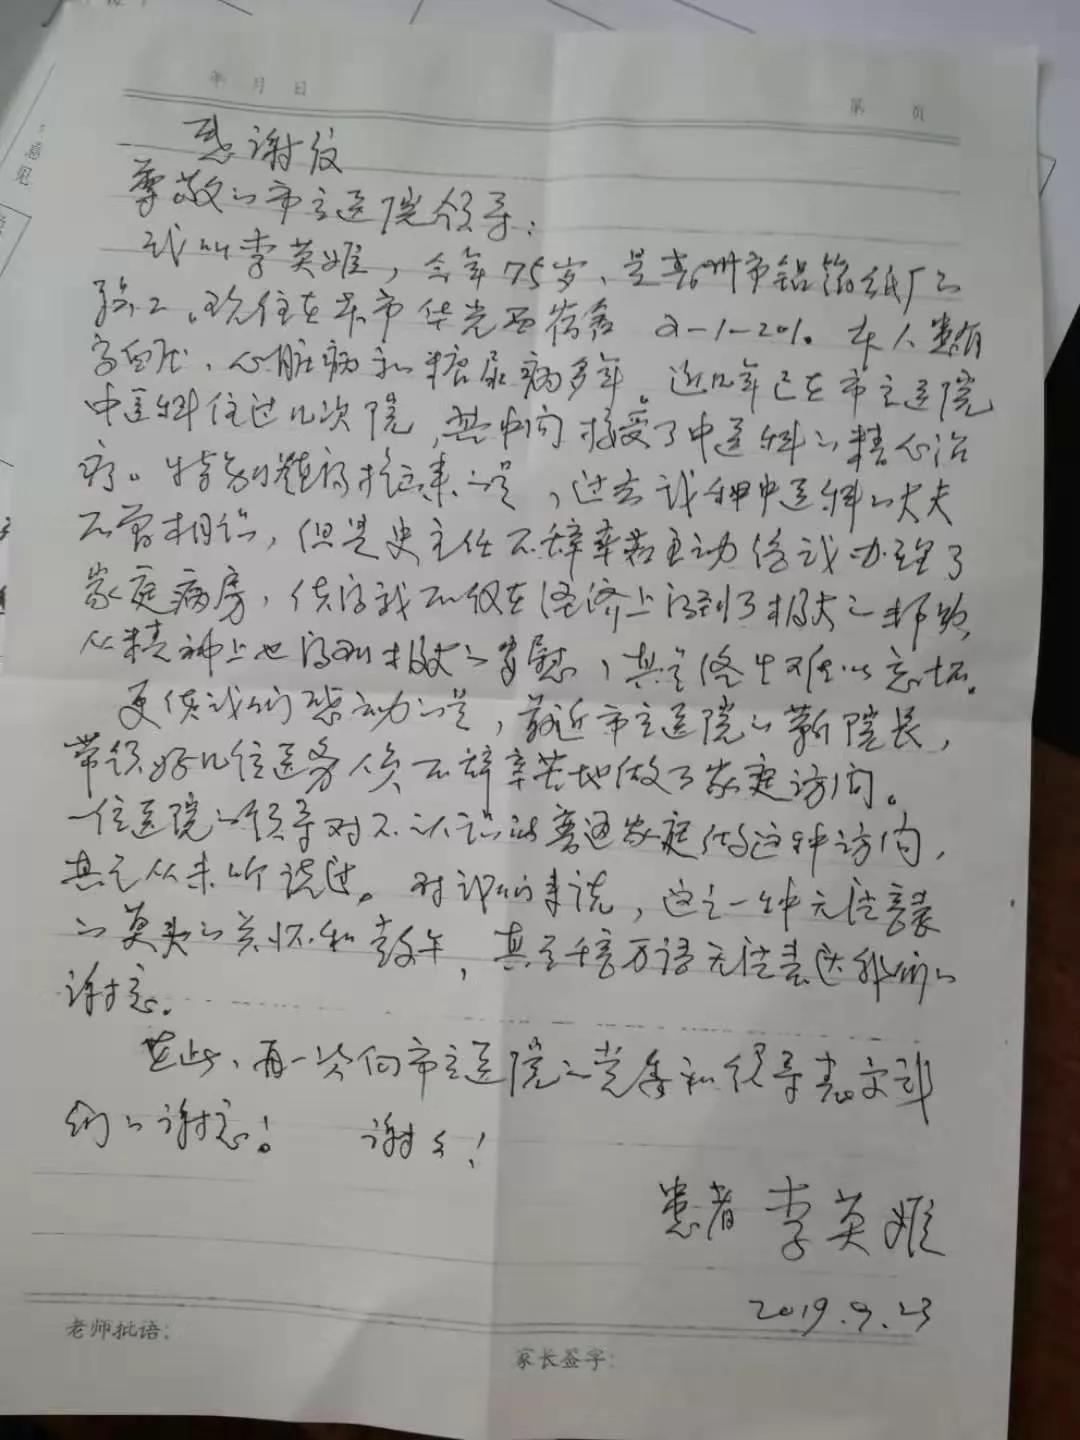 年 月 日
第 页
感谢信
尊敬的市立医院领导：
我叫李英姬，今年75岁，是市铝箔纸厂的
职工。现住在本市华光西宿舍2-1-201。本人患有
高血压、心脏病和糖尿病多年。近几年已在市立医院
中医科住过几次院，其中间接受了中医科的精心治
疗。特别值得提起来的是，过去我和中医科的大夫
不曾相识，但是史主任不辞辛苦主动给我办理了
家庭病房，使得我不仅在经济上得到了极大的帮助，
从精神上也得到极大的安慰，真是终生难以忘怀。
更使我们感动的是，最近市立医院的靳院长，
带领好几位医务人员不辞辛苦地做了家庭访问。
一位医院的领导对不认识的普通家庭做这种访问，
真是从来听说过。对我们来说，这是一种无法言表
的莫大的关怀和鼓午，真是千言万语无法表达我们的
谢意。
在此，再一次向市立医院的党委和领导表示我
们的谢意！ 谢谢！
患者 李英姬
2019.9.23
老师批语：
家长签字：
意见